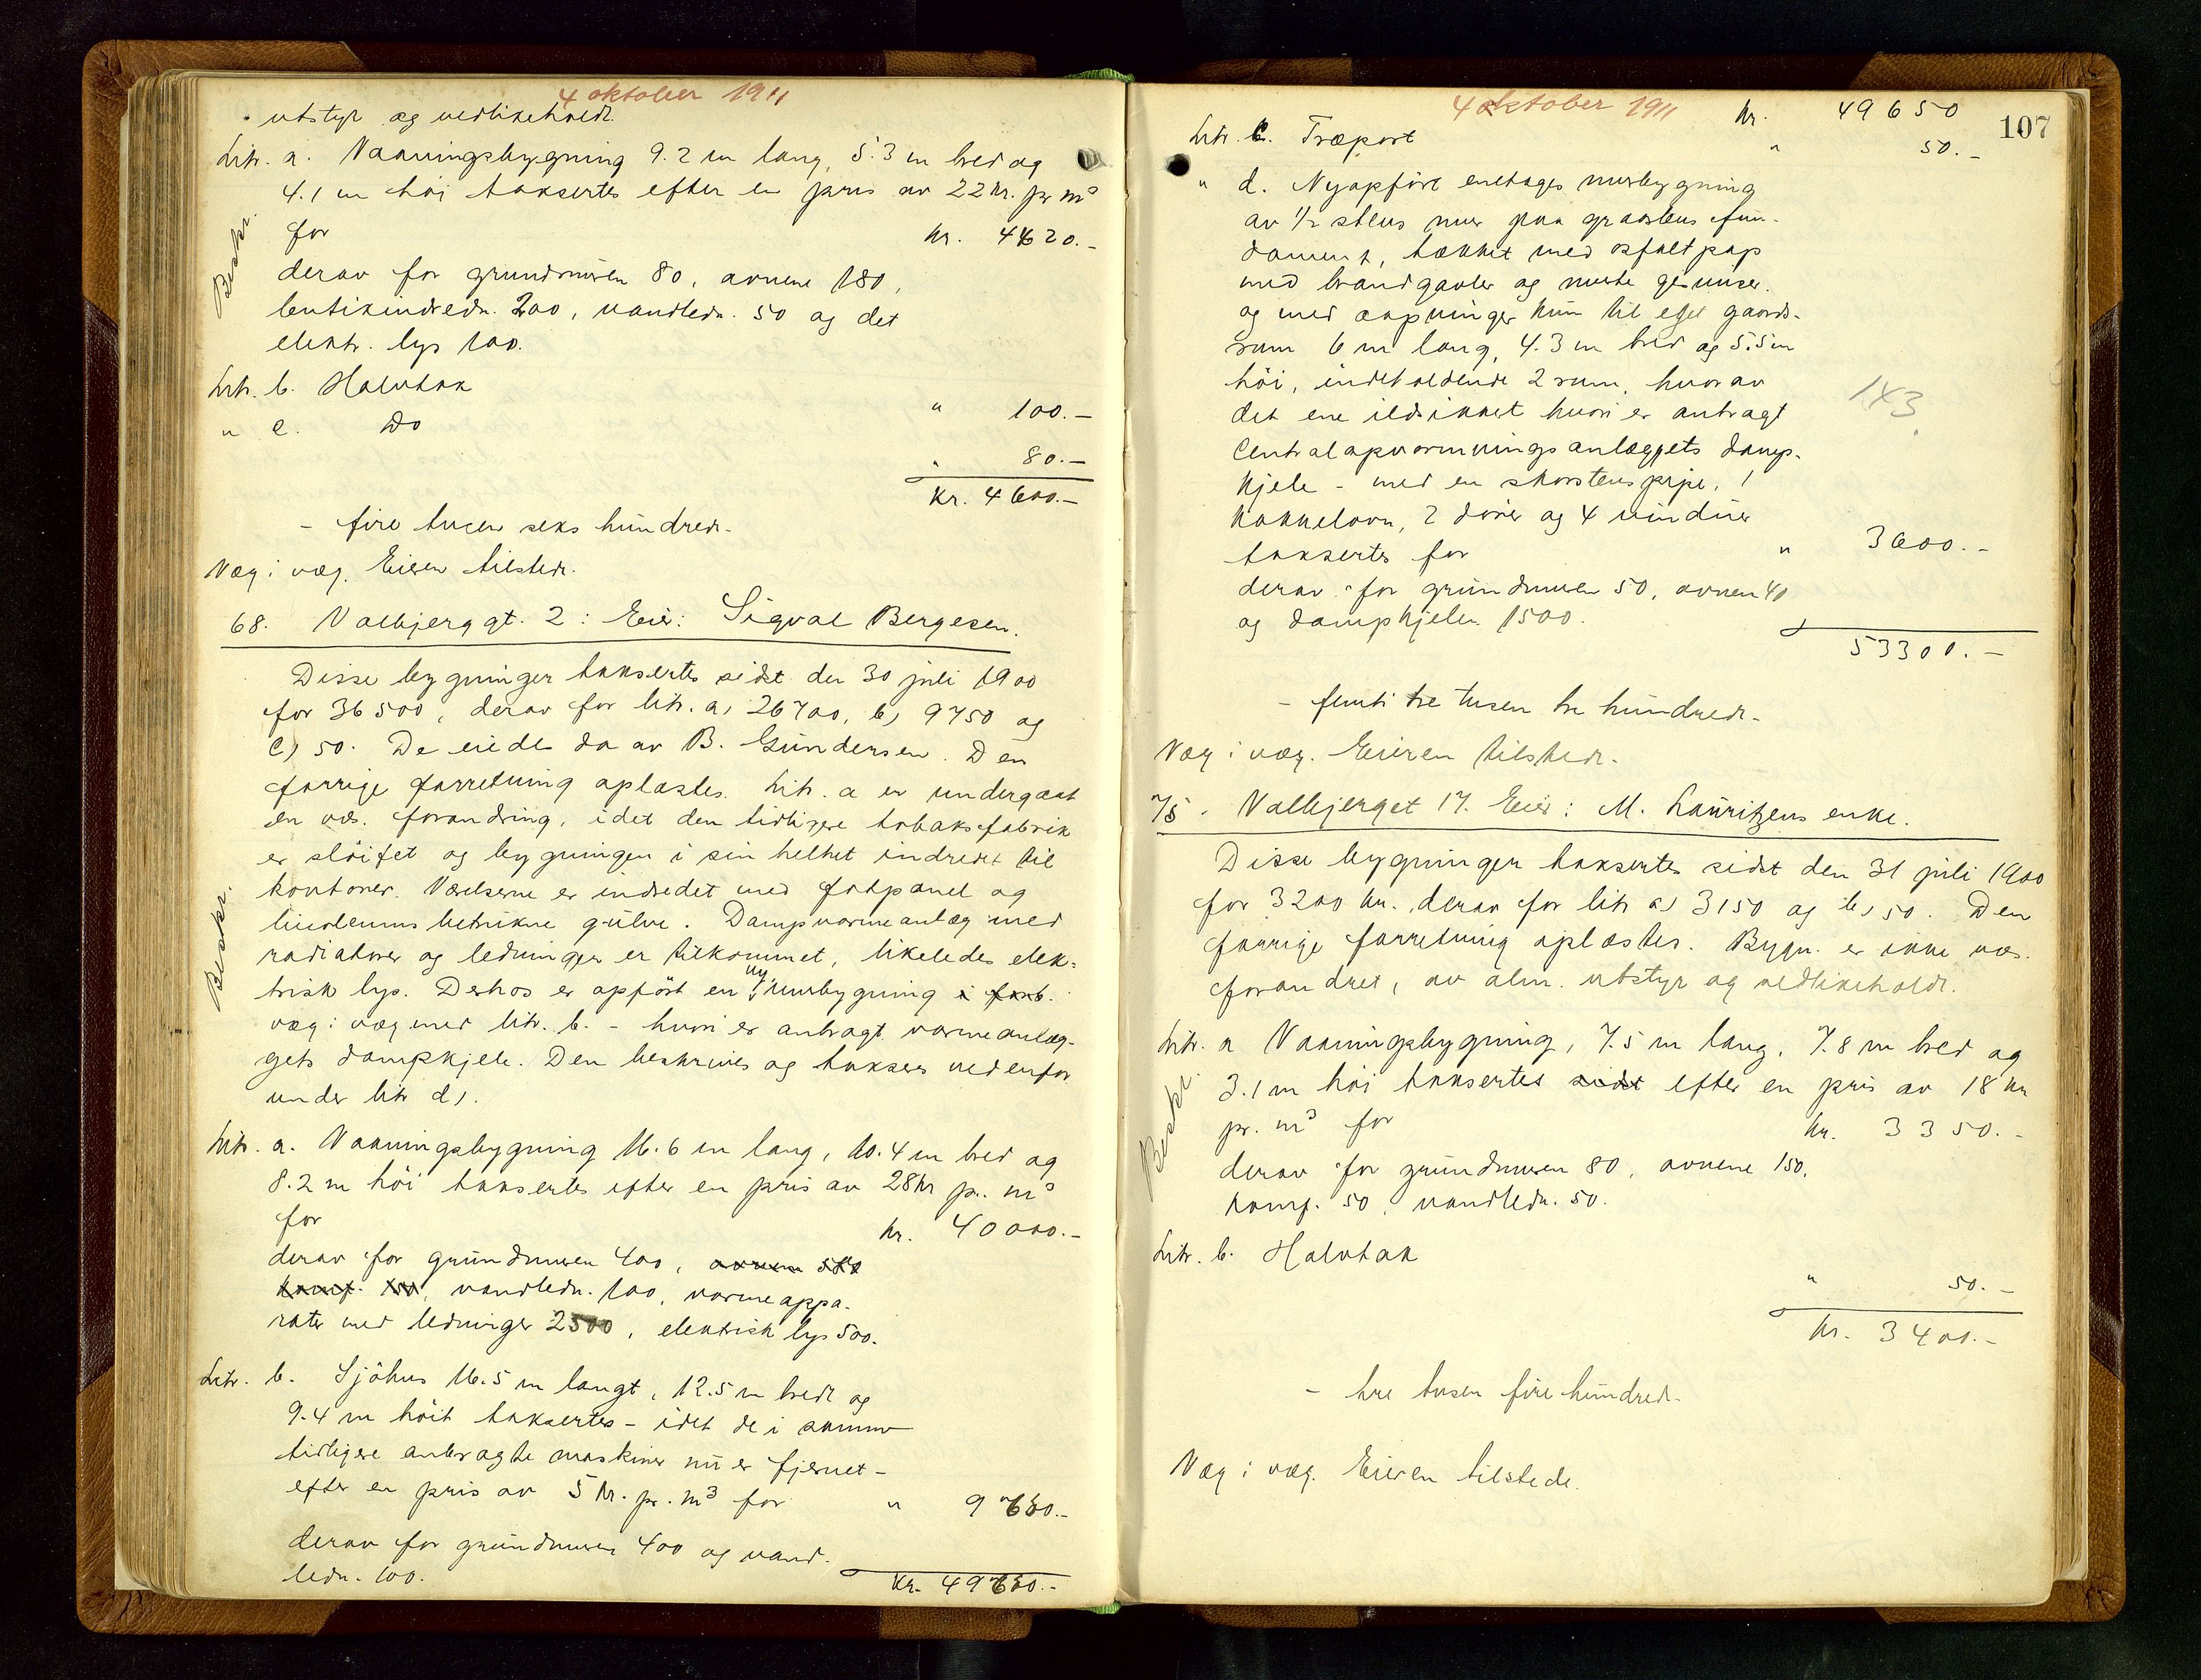 4 oktober 1911
utstyr og vedlikeholdt.
Litr. a. Vaaningsbygning 9.2 m lang, 5.3 m bred og
4.1 m höi taksertes efter en pris av 22 kr. pr m³
for kr. 4420.-
Beskr.
derav for grundmuren 80, ovnene 180,
butikindredn. 200, vandledn. 50 og det
elektr. lys 100.
Litr. b. Halvtak " 100.-
" c. Do " 80.-
Kr. 4600.-
- fire tusen seks hundrede -
Væg i væg. Eieren tilstede.
68. Valbjerggt. 2: Eier: Sigval Bergesen.
Disse bygninger taksertes sidst den 30 juli 1900
for 36500, derav for litr. a) 26700, b) 9750 og
c) 50. De eiedes da av B. Gundersen. Den
forrige forretning oplæstes. Litr. a er undergaat
en væs. forandring, idet den tidligere tobaksfabrik
er slöifet og bygningen i sin helhet indredet til
kontorer. Værelserne er indredet med fotpanel og
linoleums betrukne gulve. Dampvarmeanlæg med
radiatorer og ledninger er tilkommet, likeledes elek-
trisk lys. Derhos er opfört en ny murbygning i forb.
Beskr.
væg i væg med litr. b. - hvori er anbragt varmeanlæg-
gets dampkjele. Den beskrives og takseres nedenfor
under litr d).
Litr. a. Vaaningsbygning 16.6 m lang, 10.4 m bred og
8.2 m höi taksertes efter en pris av 28 kr pr. m³
for kr. 40000.-
derav for grundmuren 400, ovnene 580
komf. 150, vandledn. 100, varmeappa-
rater med ledninger 2500, elektrisk lys 500.
Litr. b. Sjöhus 16.5 m langt, 12.5 m bredt og
9.4 m höit taksertes - idet de i samme
tidligere anbragte maskiner nu er fjernet -
efter en pris av 5 kr. pr. m³ for " 9650.-
derav for grundmuren 400 og vand-
ledn. 100.
Kr. 49650.-
4 oktober 1911
107
Kr. 49650
Litr. c. Træport " 50.-
" d. Nyopfört enetages murbygning
av 1/2 stens mur paa graastens fun-
dament, tækket med asfaltpap
med brandgavler og murte gesimser.
og med aapninger kun til eget gaards-
rum 6 m lang, 4.3 m bred og 5.5 m
höi, indeholdende 2 rum, hvorav
det ene ildsikkert hvori er anbragt
Centralopvarmningsanlæggets damp-
kjele - med en skorstenspipe, 1
kakkelovn, 2 dörer og 4 vinduer
taksertes for " 3600.-
143.
derav for grundmuren 50, ovnen 40
og dampkjelen 1500.
53300.-
- femti tre tusen tre hundrede -
Væg i væg. Eieren tilstede.
75. Valbjerget 17. Eier: M. Lauritzens enke.
Disse bygninger taksertes sidst den 31 juli 1900
for 3200 kr. derav for litr a) 3150 og b) 50. Den
forrige forretning oplæstes. Bygn. er ikke væs.
forandret, av alm. utstyr og vedlikeholdt.
Litr. a Vaaningsbygning, 7.5 m lang, 7.8 m bred og
3.1 m höi taksertes sidst efter en pris av 18 kr
pr. m³ for kr. 3350.-
Beskr.
derav for grundmuren 80, ovnene 150,
komf. 50, vandledn. 50.
Litr. b. Halvtak " 50.-
Kr. 3400.-
- tre tusen fire hundrede -
Væg i væg. Eieren tilstede.